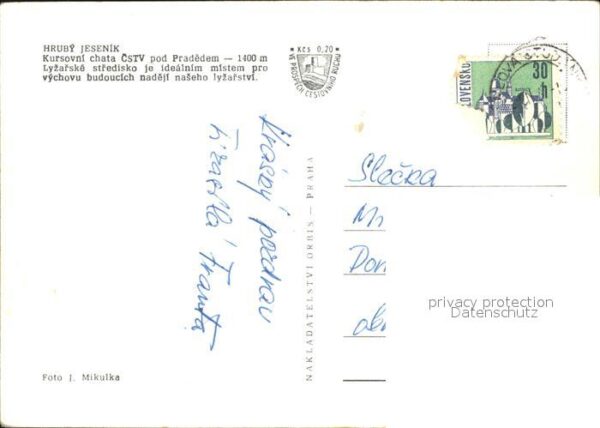 HRUBÝ JESENÍK
Kursovní chata ČSTV pod Pradědem — 1400 m
Lyžařské středisko je ideálním místem pro
výchovu budoucích nadějí našeho lyžařství.
Kčs 0,20
VE PROSPĚCH CESTOVNÍHO RUCHU
SLOVENSKO
30
h
Krásný pozdrav
Franta
NAKLADATELSTVÍ ORBIS — PRAHA
Slečka
privacy protection
Datenschutz
Foto J. Mikulka